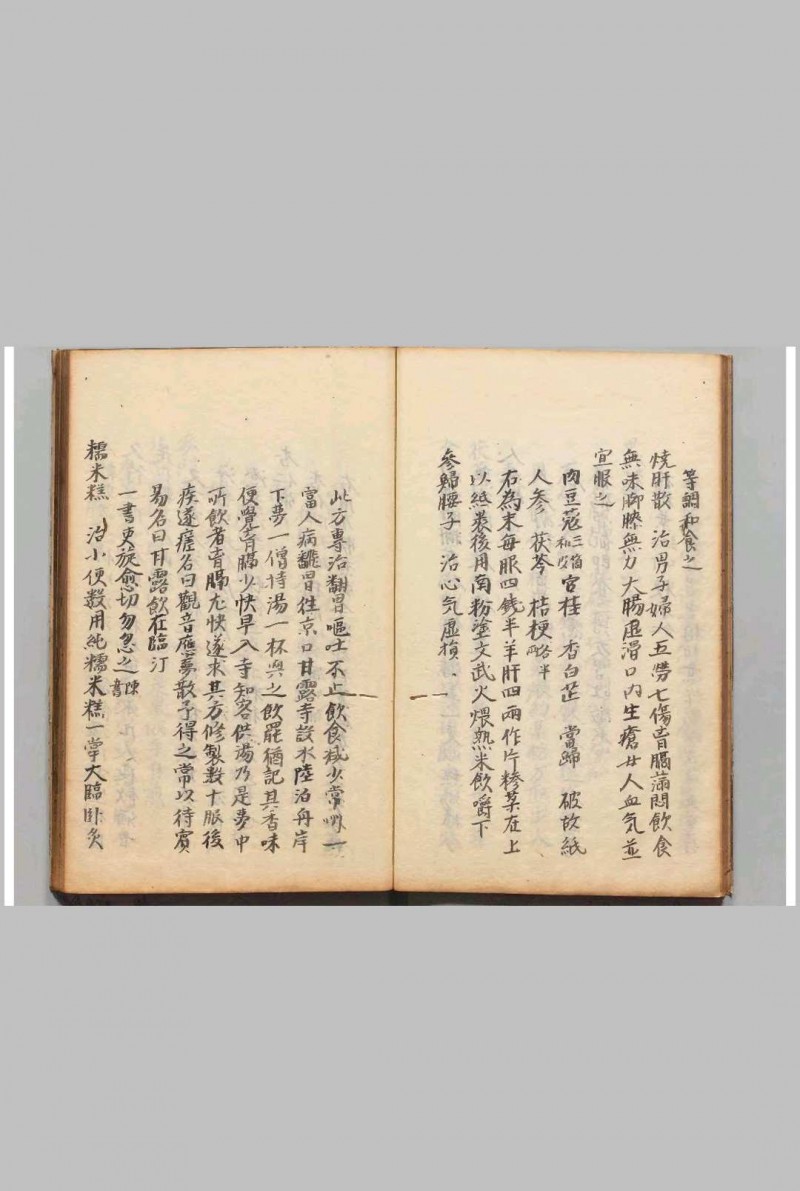 等調和食之
燒肝散 治男子婦人五勞七傷胷膈滿悶飲食
無味脚膝無力大腸虛滑口內生瘡女人血氣並
宜服之
肉豆蔻三箇 和皮 官桂 香白芷 當歸 破故紙
人参 茯苓 桔梗各半兩
右為末每服四錢半羊肝四兩作片糝藥在上
以紙裹後用南粉塗文武火煨熟米飲嚼下
參歸腰子 治心气虛損
此方專治翻胃嘔吐不止飲食减少常州一
富人病翻胃往京口甘露寺設水陸泊舟岸
下夢一僧持湯一杯與之飲罷猶記其香味
便覺胷膈少快早入寺知客供湯乃是夢中
所飲者胷膈尤快遂求其方修製数十服後
疾遂瘥名曰觀音應夢散予得之常以待賓
易名曰甘露飲在臨汀
一書吏旋愈切勿忽之陳書
糯米糕 治小便数用純糯米糕一掌大臨卧炙